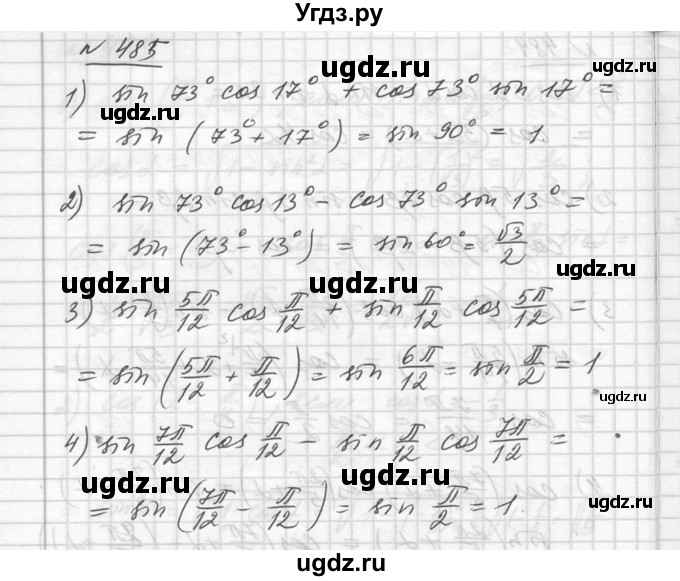 Угдз.ру
№ 485
ugdz.ru
1) sin 73° cos 17° + cos 73° sin 17° =
= sin (73° + 17°) = sin 90° = 1.
2) sin 73° cos 13° - cos 73° sin 13° =
= sin (73° - 13°) = sin 60° = √3/2
ugdz.ru ugdz.ru ugdz.ru
3) sin 5π/12 cos π/12 + sin π/12 cos 5π/12 =
= sin (5π/12 + π/12) = sin 6π/12 = sin π/2 = 1
ugdz.ru
4) sin 7π/12 cos π/12 - sin π/12 cos 7π/12 =
ugdz.ru ugdz.ru
= sin (7π/12 - π/12) = sin π/2 = 1.
ugdz.ru
ugdz.ru